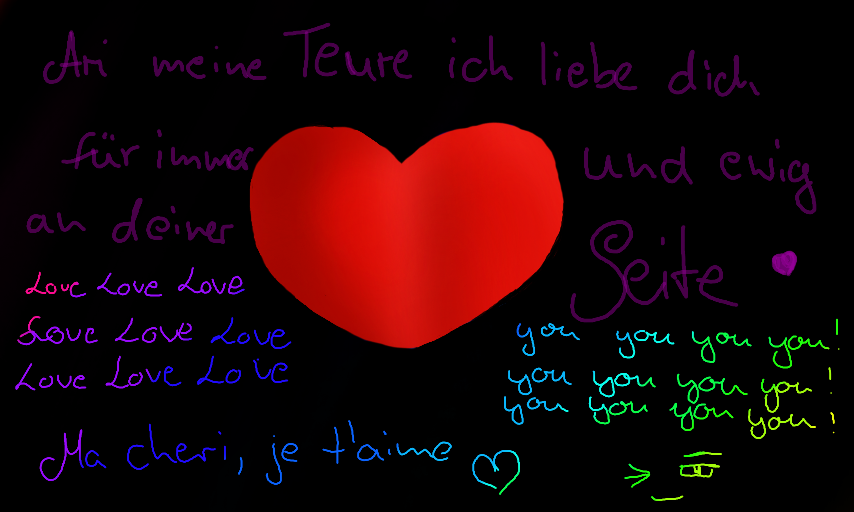 Ari meine Teure ich liebe dich
für immer und ewig
an deiner Seite
Love Love Love
Love Love Love
Love Love Love
you you you you!
you you you you!
you you you you!
Ma cheri, je t'aime